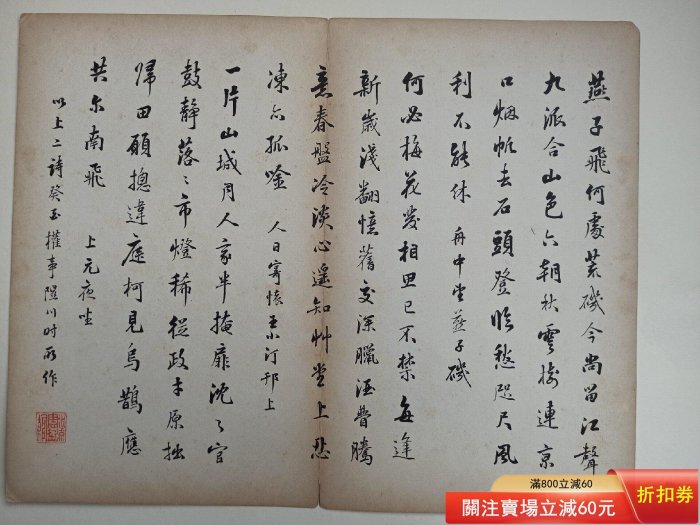 燕子飛何處荒磯今尚留江聲
九派合山色六朝秋雲接連京
口烟帆去石頭登臨愁咫尺風
利不能休 舟中望燕子磯
何必梅花發相思已不禁每逢
新歲淺翻憶舊交深臘酒瞢騰
意春盤冷淡心遥知艸堂上
凍亦孤唫 人日寄懷王小汀邗上
一片山城月人家半掩扉沈〻官
鼓靜落〻市燈稀從政才原拙
歸田願摠違庭柯見烏鵲應
共尔南飛 上元夜坐
以上二詩癸丑權事隰川時所作
滿800立減60
關注賣場立減60元
折扣券